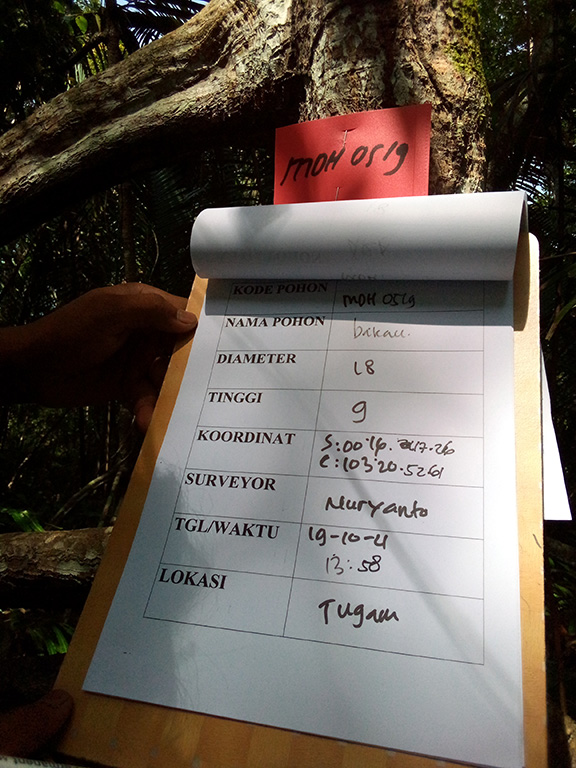 MDH 0519
KODE POHON MDH 0519
NAMA POHON bakau.
DIAMETER 18
TINGGI 9
KOORDINAT S:00'16.
E:103'20.5261
SURVEYOR Nuryanto
TGL/WAKTU 19-10-21
13:58
LOKASI Tugam